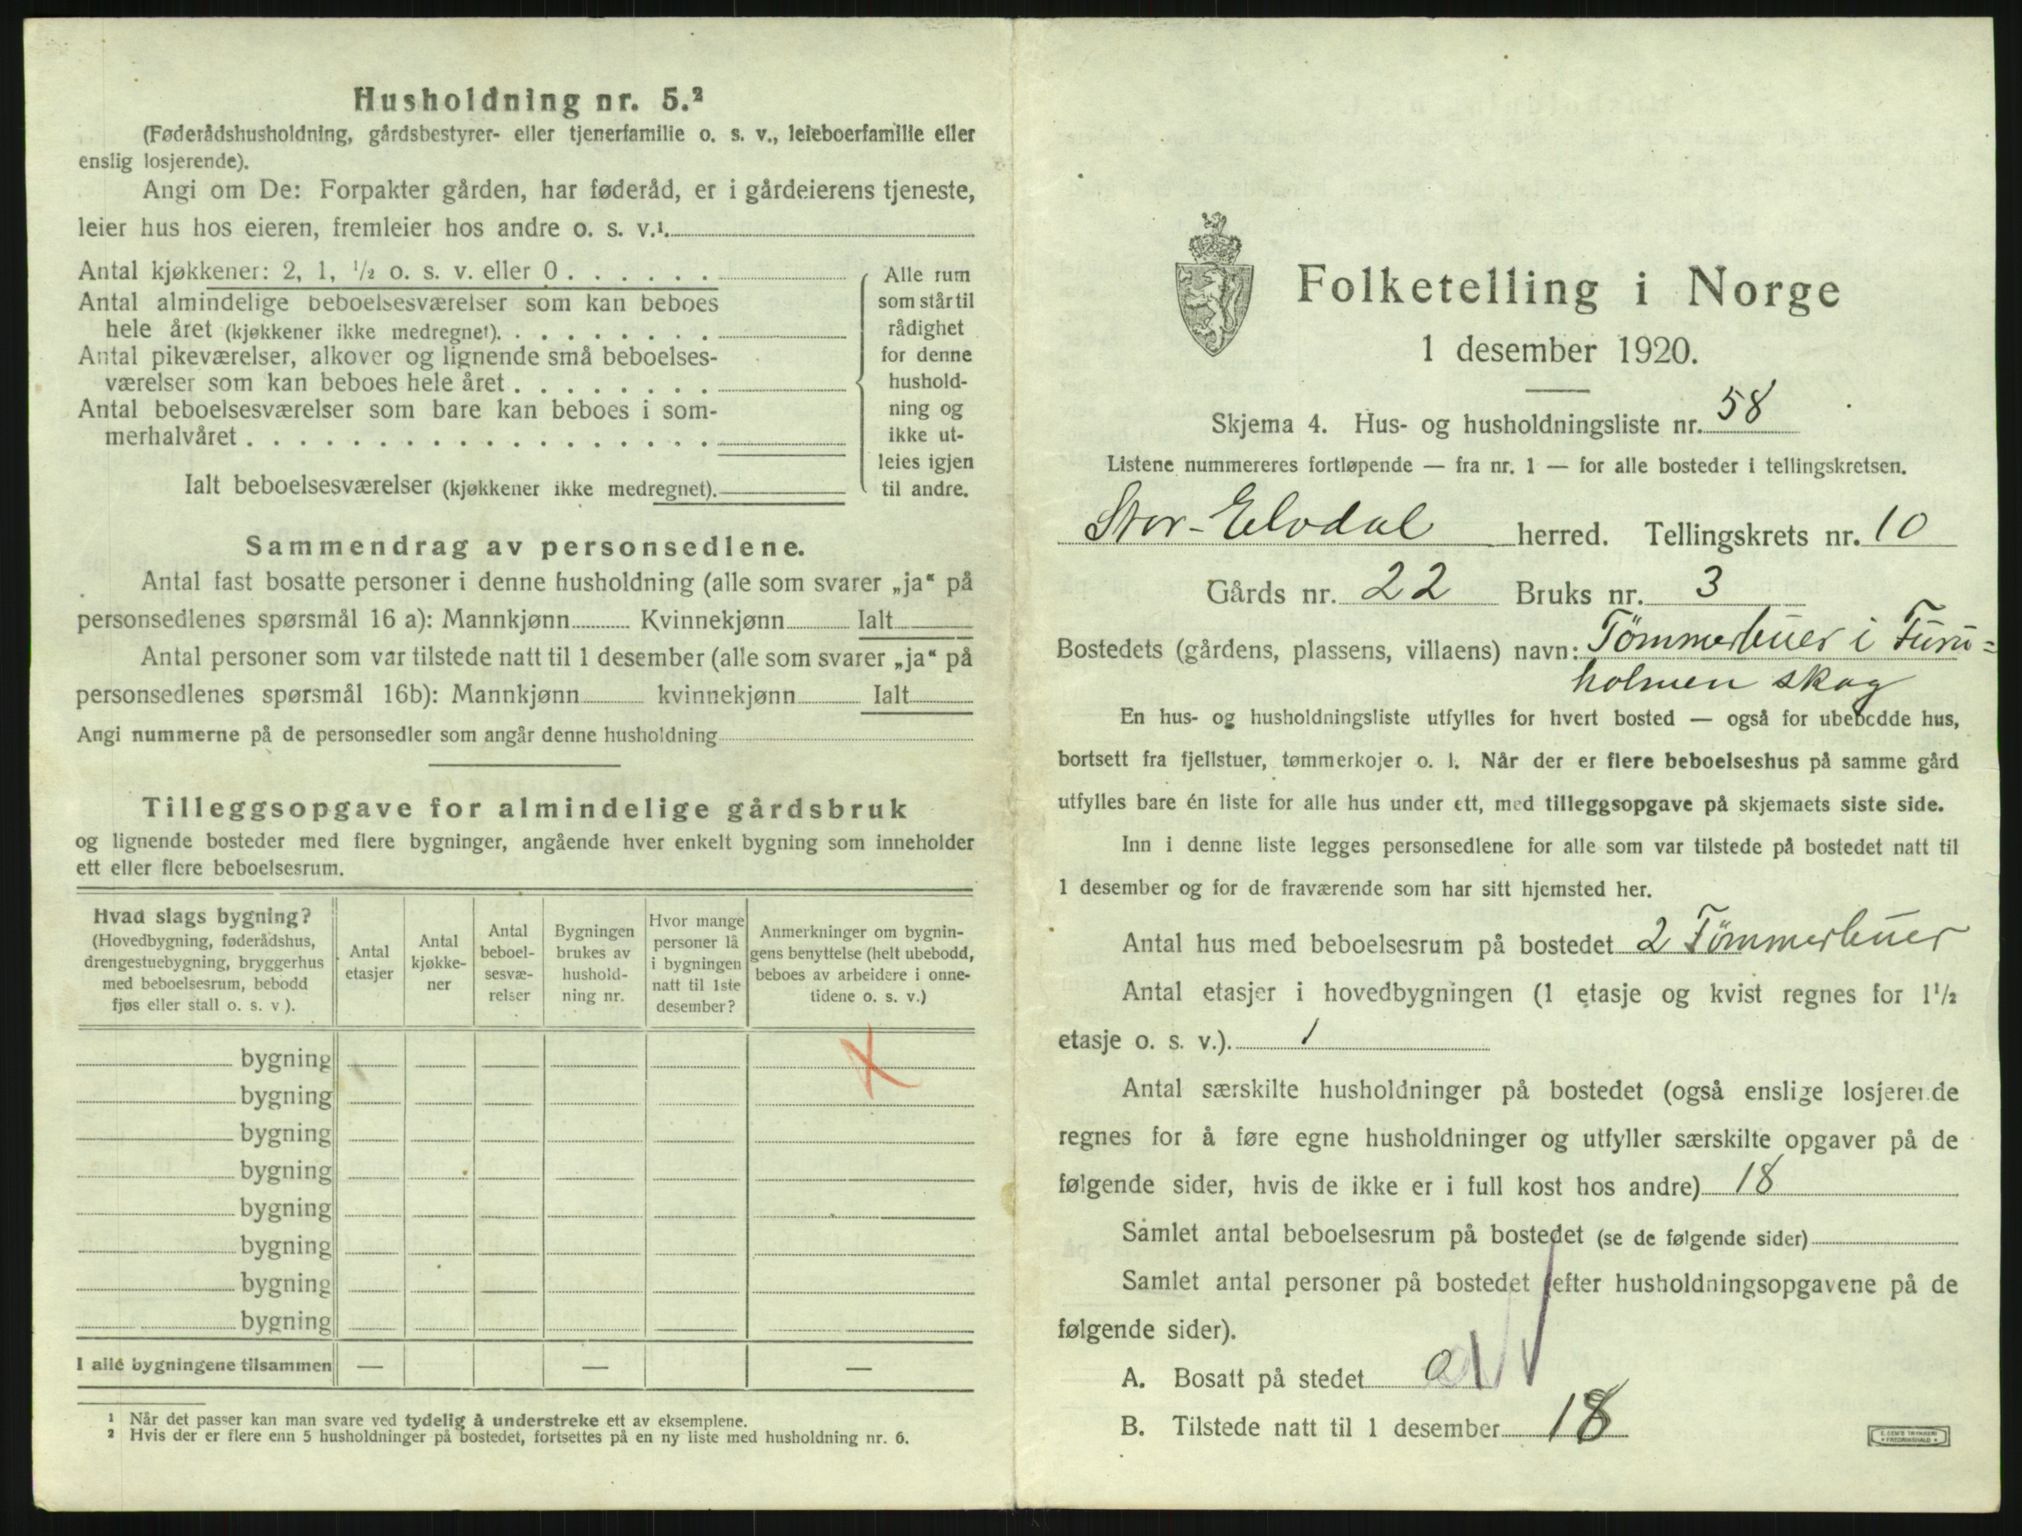 Husholdning nr. 5.²
(Føderådshusholdning, gårdsbestyrer- eller tjenerfamilie o. s. v., leieboerfamilie eller
enslig losjerende).
Angi om De: Forpakter gården, har føderåd, er i gårdeierens tjeneste,
leier hus hos eieren, fremleier hos andre o. s. v.¹.
Antal kjøkkener: 2, 1, ¹/₂ o. s. v. eller 0 . . . . . .
Antal almindelige beboelsesværelser som kan beboes
hele året (kjøkkener ikke medregnet). . . . . . . . .
Antal pikeværelser, alkover og lignende små beboelses-
værelser som kan beboes hele året . . . . . . . .
Antal beboelsesværelser som bare kan beboes i som-
merhalvåret . . . . . . . . . . . . . . . . . .
Ialt beboelsesværelser (kjøkkener ikke medregnet).
Alle rum
som står til
rådighet
for denne
hushold-
ning og
ikke ut-
leies igjen
til andre.
Sammendrag av personsedlene.
Antal fast bosatte personer i denne husholdning (alle som svarer „ja“ på
personsedlenes spørsmål 16 a): Mannkjønn Kvinnekjønn Ialt
Antal personer som var tilstede natt til 1 desember (alle som svarer „ja“ på
personsedlenes spørsmål 16b): Mannkjønn kvinnekjønn Ialt
Angi nummerne på de personsedler som angår denne husholdning
Tilleggsopgave for almindelige gårdsbruk
og lignende bosteder med flere bygninger, angående hver enkelt bygning som inneholder
ett eller flere beboelsesrum.
Hvad slags bygning?
(Hovedbygning, føderådshus,
drengestuebygning, bryggerhus
med beboelsesrum, bebodd
fjøs eller stall o. s. v ).
Antal
etasjer
Antal
kjøkke-
ner
Antal
beboel-
sesvæ-
relser
Bygningen
brukes av
hushold-
ning nr.
Hvor mange
personer lå
i bygningen
natt til 1ste
desember?
Anmerkninger om bygnin-
gens benyttelse (helt ubebodd,
beboes av arbeidere i onne-
tidene o. s. v.)
bygning
bygning
bygning
bygning
bygning
bygning
bygning
bygning
I alle bygningene tilsammen — — —
¹ Når det passer kan man svare ved tydelig å understreke ett av eksemplene.
² Hvis der er flere enn 5 husholdninger på bostedet, fortsettes på en ny liste med husholdning nr. 6.
Folketelling i Norge
1 desember 1920.
Skjema 4. Hus- og husholdningsliste nr. 58
Listene nummereres fortløpende — fra nr. 1 — for alle bosteder i tellingskretsen.
Stor-Elvdal herred. Tellingskrets nr. 10
Gårds nr. 22 Bruks nr. 3
Bostedets (gårdens, plassens, villaens) navn: Tømmerbuer i Furu=
holmen skog
En hus- og husholdningsliste utfylles for hvert bosted — også for ubebodde hus,
bortsett fra fjellstuer, tømmerkojer o. l. Når der er flere beboelseshus på samme gård
utfylles bare én liste for alle hus under ett, med tilleggsopgave på skjemaets siste side.
Inn i denne liste legges personsedlene for alle som var tilstede på bostedet natt til
1 desember og for de fraværende som har sitt hjemsted her.
Antal hus med beboelsesrum på bostedet 2 Tømmerbuer
Antal etasjer i hovedbygningen (1 etasje og kvist regnes for 1¹/₂
etasje o. s. v.). 1
Antal særskilte husholdninger på bostedet (også enslige losjerende
regnes for å føre egne husholdninger og utfyller særskilte opgaver på de
følgende sider, hvis de ikke er i full kost hos andre) 18
Samlet antal beboelsesrum på bostedet (se de følgende sider)
Samlet antal personer på bostedet (efter husholdningsopgavene på de
følgende sider).
A. Bosatt på stedet 0
B. Tilstede natt til 1 desember 18